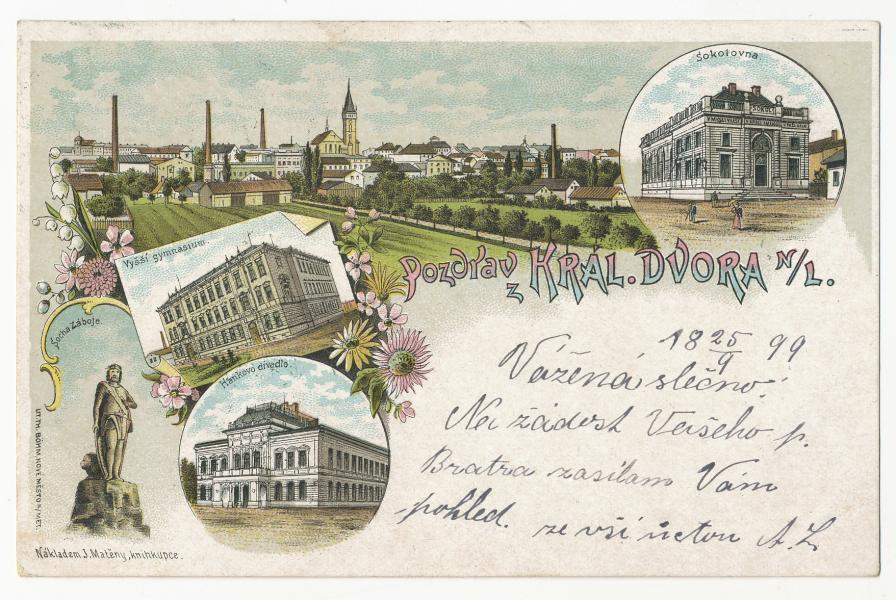 Sokolovna.
SOKOL
Pozdrav
z KRÁL. DVORA N/L.
Vyšší gymnasium.
Socha Záboje.
Hankovo divadlo.
18 25/9 99
Vážená slečno!
Na žádost Vašeho p.
Bratra zasílam Vám
pohled.
ze vší úctou A. L
LIT. TH. BÖHM, NOVÉ MĚSTO N/MET.
Nákladem J. Matěny, knihkupce.